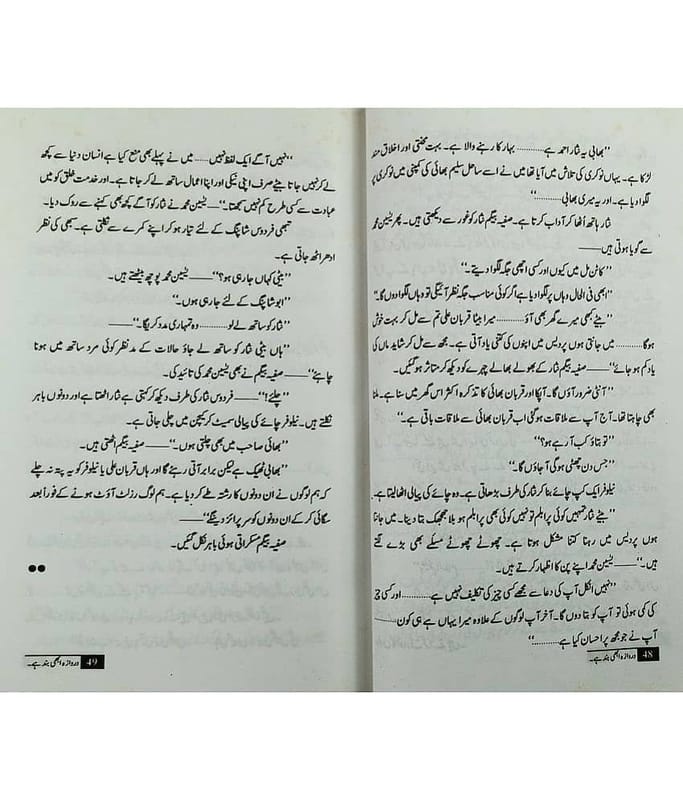 ”بھابی یہ نثار احمد ہے........ بہار کا رہنے والا ہے۔ بہت محنتی اور اخلاق مند
لڑکا ہے۔ یہاں نوکری کی تلاش میں آیا تھا میں نے اسے ساحل سلیم بھائی کی کمپنی میں نوکری پر
لگوا دیا ہے۔ اور یہ میری بھابی........“
نثار ہاتھ اٹھا کر آداب کرتا ہے۔ صفیہ بیگم نثار کو غور سے دیکھتی ہیں۔ پھر یٰسین محمد
سے گویا ہوتی ہیں——
”کاٹن مل میں کیوں اور کسی اچھی جگہ لگوا دیتے۔“
”ابھی فی الحال وہاں پر لگوا دیا ہے اگر کوئی مناسب جگہ نظر آئیگی تو وہاں لگوا دوں گا۔“
”بیٹے کبھی میرے گھر بھی آؤ........ میرا بیٹا قربان علی تم سے مل کر بہت خوش
ہوگا........ میں جانتی ہوں پردیس میں اپنوں کی کتنی یاد آتی ہے۔ مجھ سے مل کر شاید ماں کی
یاد کم ہو جائے“—— صفیہ بیگم نثار کے بھولے بھالے چہرے کو دیکھ کر متاثر ہو گئیں۔
”آنٹی ضرور آؤں گا۔ آپکا اور قربان بھائی کا تذکرہ اکثر اس گھر میں سنا ہے۔ ملنا
بھی چاہتا تھا۔ آج آپ سے ملاقات ہوگئی اب قربان بھائی سے ملاقات باقی ہے۔“
”تو بتاؤ کب آ رہے ہو؟“
”جس دن چھٹی ہوگی آ جاؤں گا۔“
نیلوفر ایک کپ چائے بنا کر نثار کی طرف بڑھاتی ہے۔ وہ چائے کی پیالی اٹھا لیتا ہے۔
”بیٹے نثار تمہیں کوئی پرابلم تو نہیں کوئی بھی پرابلم ہو بلا جھجھک بتا دینا۔ میں جانتا
ہوں پردیس میں رہنا کتنا مشکل ہوتا ہے۔ چھوٹے چھوٹے مسئلے بھی بڑے لگتے
ہیں۔“—— یٰسین محمد اپنے پن کا اظہار کرتے ہیں۔
”نہیں انکل آپ کی دعا سے مجھے کسی چیز کی تکلیف نہیں ہے........ اور کسی چیز
کی کمی ہوئی تو آپ کو بتا دوں گا۔ آخر آپ لوگوں کے علاوہ میرا یہاں ہے ہی کون——
آپ نے جو مجھ پر احسان کیا ہے........“
48 دروازہ ابھی بند ہے۔
”نہیں آگے ایک لفظ نہیں...... میں نے پہلے بھی منع کیا ہے انسان دنیا سے کچھ
لے کر نہیں جاتا بیٹے صرف اپنی نیکی اور اپنا اعمال ساتھ لے کر جاتا ہے۔ اور خدمت خلق کو میں
عبادت سے کسی طرح کم نہیں سمجھتا۔“—— یٰسین محمد نے نثار کو آگے کچھ بھی کہنے سے روک دیا۔
تبھی فردوس شاپنگ کے لئے تیار ہو کر اپنے کمرے سے نکلتی ہے۔ سبھی کی نظر
ادھر اٹھ جاتی ہے۔
”بیٹی کہاں جا رہی ہو؟“—— یٰسین محمد پوچھ بیٹھتے ہیں۔
”ابو شاپنگ کے لئے جا رہی ہوں۔“
”نثار کو ساتھ لے لو........ وہ تمہاری مدد کریگا۔“——
ہاں بیٹی نثار کو ساتھ لے جاؤ حالات کے مدنظر کوئی مرد ساتھ میں ہونا
چاہئے“—— صفیہ بیگم نے بھی یٰسین محمد کی تائید کی۔
”چلئے!“—— فردوس نثار کی طرف دیکھ کر کہتی ہے نثار اٹھتا ہے اور دونوں باہر
نکلتے ہیں۔ نیلوفر چائے کی پیالی سمیٹ کر کیچن میں چلی جاتی ہے۔
”بھائی صاحب میں بھی چلتی ہوں۔“—— صفیہ بیگم اٹھتی ہیں۔
”بھابی ٹھیک ہے لیکن برابر آتی رہئے گا اور ہاں قربان علی یا نیلوفر کو یہ پتہ نہ چلے
کہ ہم لوگوں نے ان دونوں کا رشتہ طے کر دیا ہے۔ ہم لوگ رزلٹ آؤٹ ہونے کے فوراً بعد
سگائی کر کے ان دونوں کو سرپرائز دینگے“——
صفیہ بیگم مسکراتی ہوئی باہر نکل گئیں۔
●●
49 دروازہ ابھی بند ہے۔